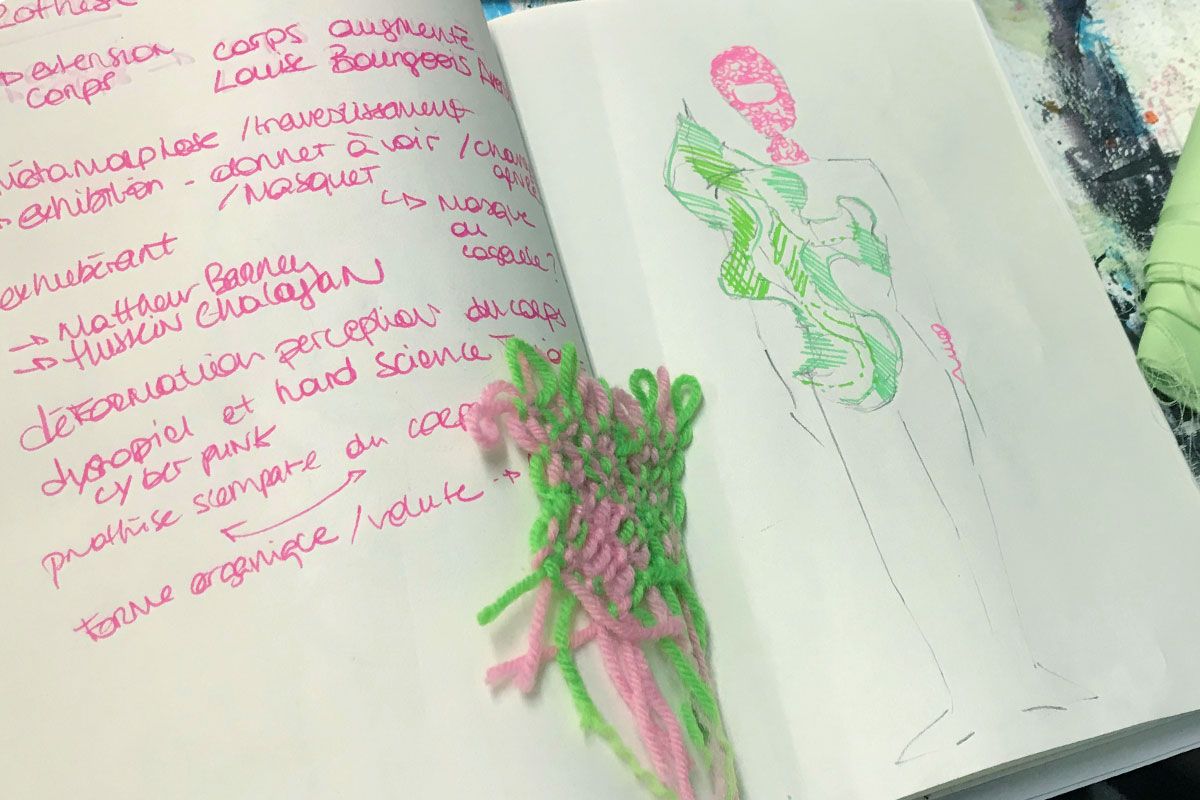 → extension corps augmenté
corps Louise Bourgeois
métamorphose / travestissement
→ exhibition - donner à voir /
/ Masquer
↳ masque
ou
cagoule ?
exhubérant
→ Matthew Barney
→ Hussein Chalayan
déformation perception du corps
dystopiel et hard science
cyber punk
prothèse s'empare du corps
forme organique / volute →